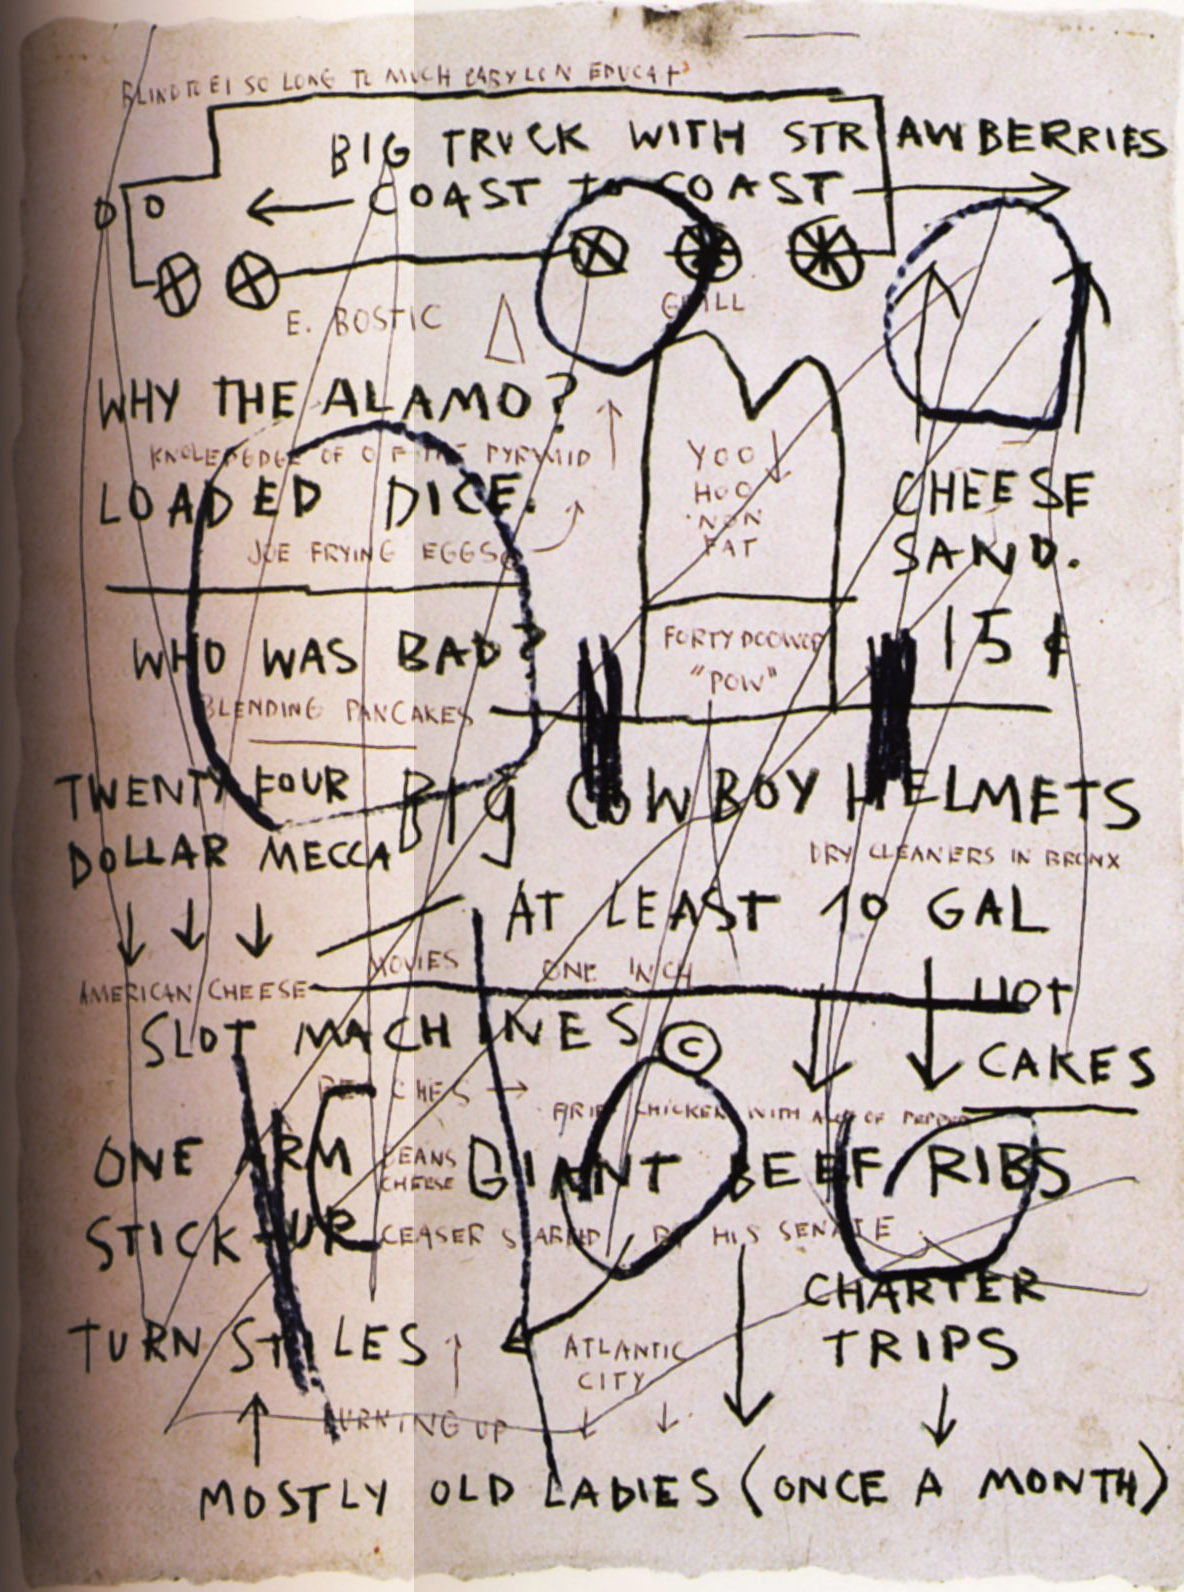 SO LONG TO MUCH BABYLON EDUCAT
BIG TRUCK WITH STRAWBERRIES
COAST to COAST
O O
E. BOSTIC
GRILL
WHY THE ALAMO?
KNOLEDGE OF OF THE PYRMID
LOADED DICE.
JOE FRYING EGGS
YOO
HOO
NON
FAT
CHEESE
SAND.
15 ¢
WHO WAS BAD?
"POW"
BLENDING PANCAKES
TWENTY FOUR
DOLLAR MECCA
BIG COWBOY HELMETS
DRY CLEANERS IN BRONX
AT LEAST 10 GAL
MOVIES
ONE INCH
AMERICAN CHEESE
HOT
CAKES
SLOT MACHINES ©
CHICKEN WITH A LOT OF PEPPER
ONE ARM
BEANS
CHEESE
GIANT BEEF RIBS
STICK UP
CEASER STABBED BY HIS SENATE
CHARTER
TRIPS
TURN STILES
ATLANTIC
CITY
BURNING UP
MOSTLY OLD LADIES (ONCE A MONTH)